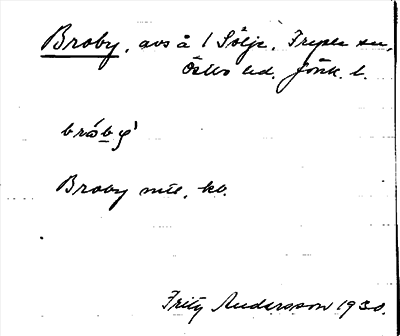 Broby, avs å 1 Sölje, Fryele sn,
Östbo hd. Jönk. l.
Broby mtl, kb.
Fritz Andersson 1930.